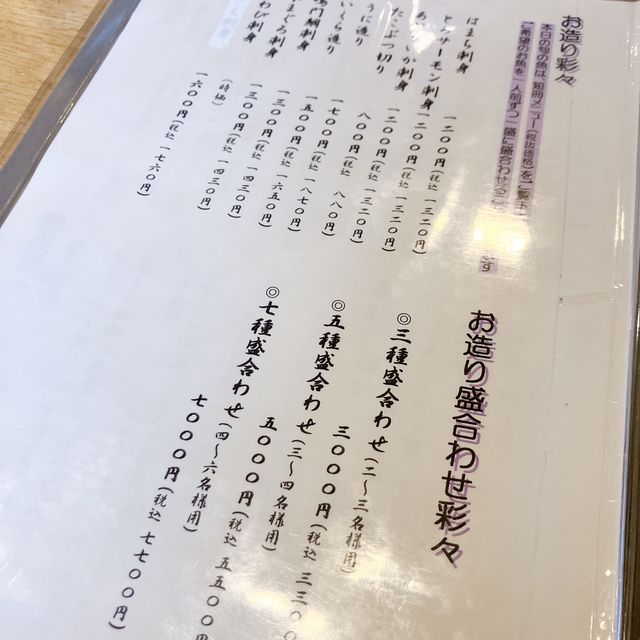 お造り彩々
本日の旬の魚は、短冊メニュー(税抜価格)をご覧下
ご希望のお魚を一人前ずつ一盛に盛合わせる
です
はまち刺身 一二〇〇円(税込 一三二〇円)
とろサーモン刺身 一二〇〇円(税込 一三二〇円)
いか刺身 一二〇〇円(税込 一三二〇円)
たこぶつ切り 八〇〇円(税込 八八〇円)
うに造り 一七〇〇円(税込 一八七〇円)
いくら造り 一五〇〇円(税込 一六五〇円)
鳴門鯛刺身 一三〇〇円(税込 一四三〇円)
まぐろ刺身 (時価)
わび刺身 一六〇〇円(税込 一七六〇円)
お造り盛合わせ彩々
◎三種盛合わせ(二〜三名様用)
三〇〇〇円(税込 三三〇
◎五種盛合わせ(三〜四名様用)
五〇〇〇円(税込 五五〇〇円
◎七種盛合わせ(四〜六名様用)
七〇〇〇円(税込 七七〇〇円)